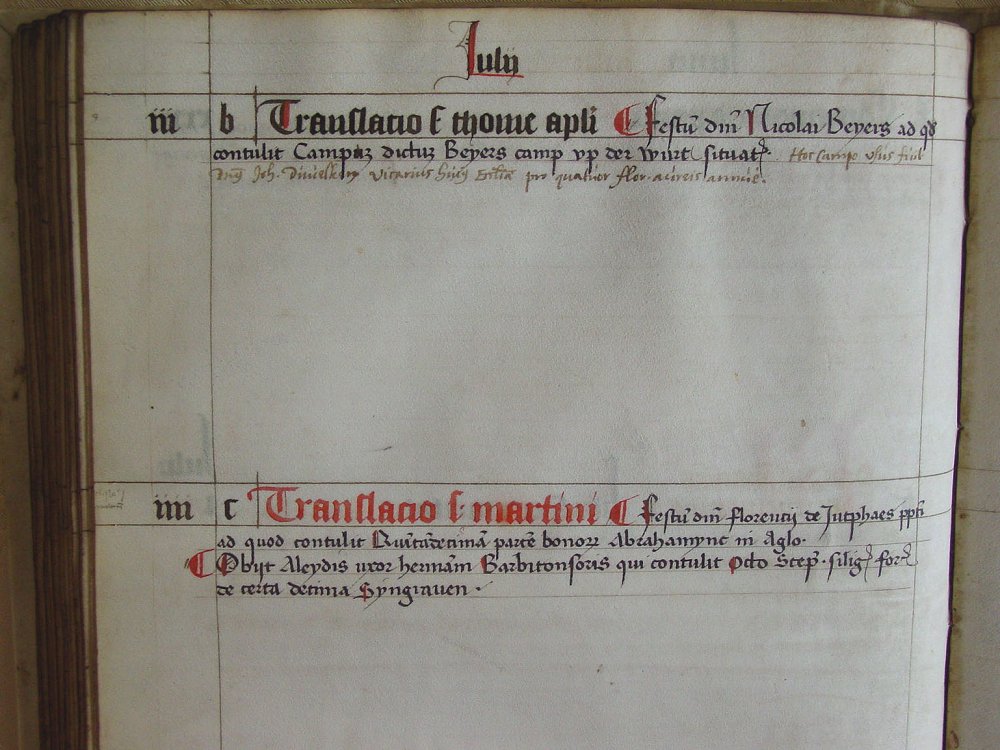 Julij
iii b Translacio s thome apli Festū dnī Nicolai Beyers ad qd
contulit Campuz dictuz Beyers camp vp der wurt situat.
Joh. vicarius pro quatuor flor. aureis
iiii c Translacio s. martini Festū dnī florencij de Jutphaes ppti
ad quod contulit Quītādecimā partē bonorr Abrahamync in Aglo.
Obijt Aleydis uxor hermāni Barbitonsoris qui contulit Octo Scep. silig for
de certa decima Syngrauen.